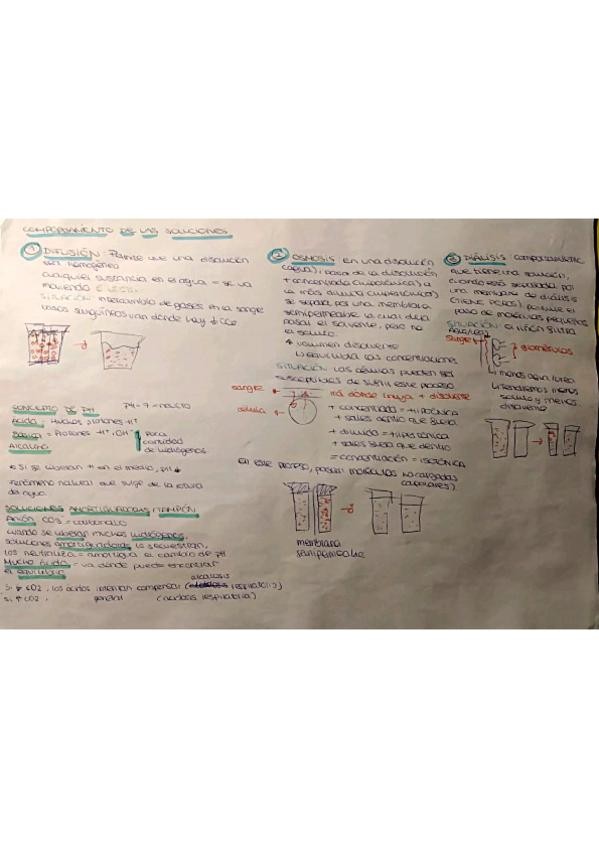 COMPORTAMIENTO DE LAS SOLUCIONES
1 DIFUSIÓN: Permite que una disolución
sea homogénea
cualquier sustancia en el agua = se va
moviendo
SITUACIÓN: intercambio de gases en la sangre
vasos sanguíneos van dónde hay
CONCEPTO DE PH
PH = 7 = neutro
Ácido = Muchos protones H+
Básica = Protones -H+, OH-
Alcalino
Poca
cantidad
de hidrógenos
Si se liberan H en el medio, PH
Fenómeno natural que surge de la rotura
de agua
SOLUCIONES AMORTIGUADORAS / TAMPÓN
Anión CO3 = carbonato
cuando se liberan muchos hidrógenos,
soluciones amortiguadoras lo secuestran,
los neutraliza = amortigua el cambio de PH
Mucho ácido = va dónde pueda encontrar
el equilibrio
alcalosis
Si CO2, los ácidos intentan compensar ( respiratoria)
Si ↑ CO2, (acidosis respiratoria)
2 OSMOSIS en una disolución
(agua), pasa de la disolución
+ concentrada (hipertónica) a
la más diluida (hipotónica)
se separa por una membrana
semipermeable la cual deja
pasar el solvente, pero no
el soluto.
volumen disolvente
equilibra las concentraciones
SITUACIÓN: Las células pueden ser
susceptibles de sufrir este proceso
sangre
célula
irá dónde haya + disolvente
+ concentrado =
+ sales dentro que fuera
+ diluido =
+ sales fuera que dentro
= concentración = isotónica
En este proceso, pasan moléculas no cargadas
membrana
semipermeable
3 DIÁLISIS comportamiento
que tiene una solución,
cuando está separada por
una membrana de diálisis
(tiene poros) permite el
paso de moléculas pequeñas
SITUACIÓN: el riñón filtra
sangre
glomérulos
menos agua
tendremos menos
soluto y menos
disolvente